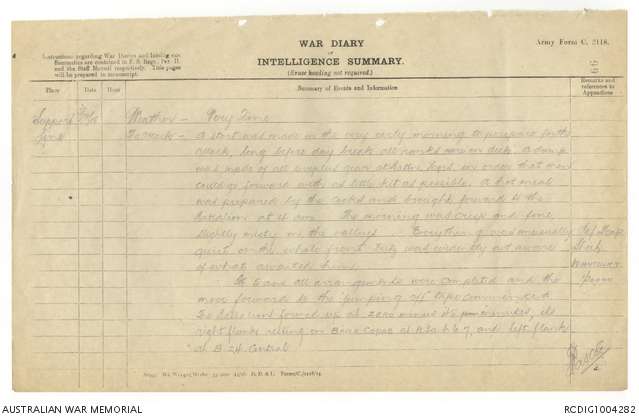 WAR DIARY
or
INTELLIGENCE SUMMARY.
(Erase heading not required.)
Army Form C. 2118.
Instructions regarding War Diaries and Intelligence
Summaries are contained in F. S. Regs., Part II.
and the Staff Manual respectively. Title pages
will be prepared in manuscript.
66
Place Date Hour Summary of Events and Information Remarks and references to Appendices
Support Weather - Very Fine
A start was made in the very early morning to prepare for the
attack, long before day break all ranks were on deck. A dump
was made of all surplus gear at Battn Hqrs, in order that men
could go forward with as little kit as possible. A hot meal
was prepared by the cooks and brought forward to the
Battalion at 4 am. The morning was crisp and fine
slightly misty in the valleys. Everything was unusually
quiet on the whole front. Fritz was evidently not aware
of what awaited him.
all arrangements were completed and the
move forward to the "jumping off" tape commenced
The Battalion formed up at Zero minus 45 minutes, its
right flank resting on Copse at and left flank
at B 24 Central
Ref Map
AUSTRALIAN WAR MEMORIAL
RCDIG1004282